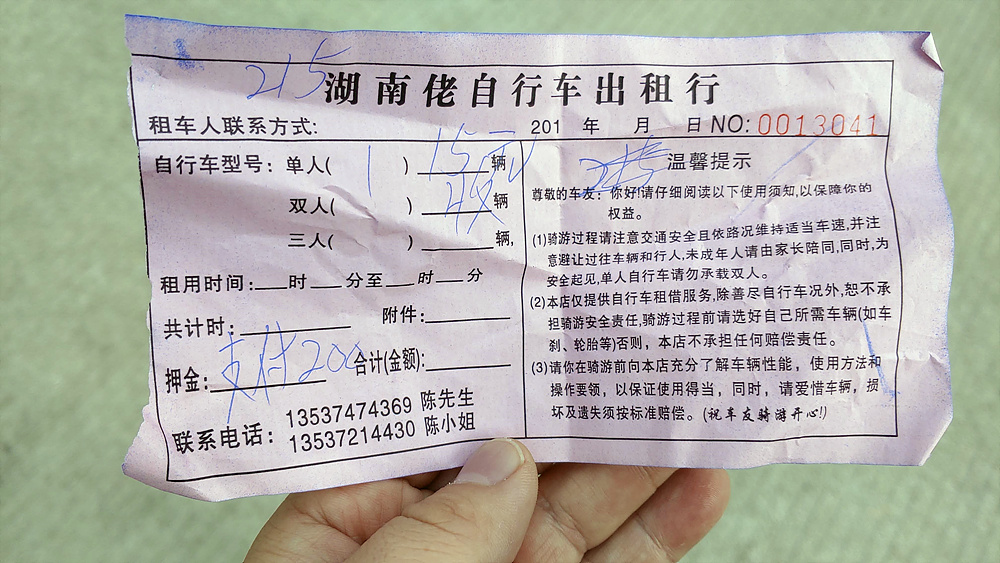 215
湖南佬自行车出租行
租车人联系方式:
201 年 月 日 NO: 0013041
自行车型号: 单人( 1 ) 15元 辆
双人( ) 辆
三人( ) 辆,
租用时间: 时 分至 时 分
共计时: 附件:
押金: 支付200 合计(金额):
联系电话: 13537474369 陈先生
13537214430 陈小姐
温馨提示
尊敬的车友: 你好!请仔细阅读以下使用须知,以保障你的
权益。
(1)骑游过程请注意交通安全且依路况维持适当车速,并注
意避让过往车辆和行人,未成年人请由家长陪同,同时,为
安全起见,单人自行车请勿承载双人。
(2)本店仅提供自行车租借服务,除善尽自行车况外,恕不承
担骑游安全责任,骑游过程前请选好自己所需车辆(如车
刹、轮胎等)否则，本店不承担任何赔偿责任。
(3)请你在骑游前向本店充分了解车辆性能，使用方法和
操作要领，以保证使用得当，同时，请爱惜车辆，损
坏及遗失须按标准赔偿。(祝车友骑游开心!)